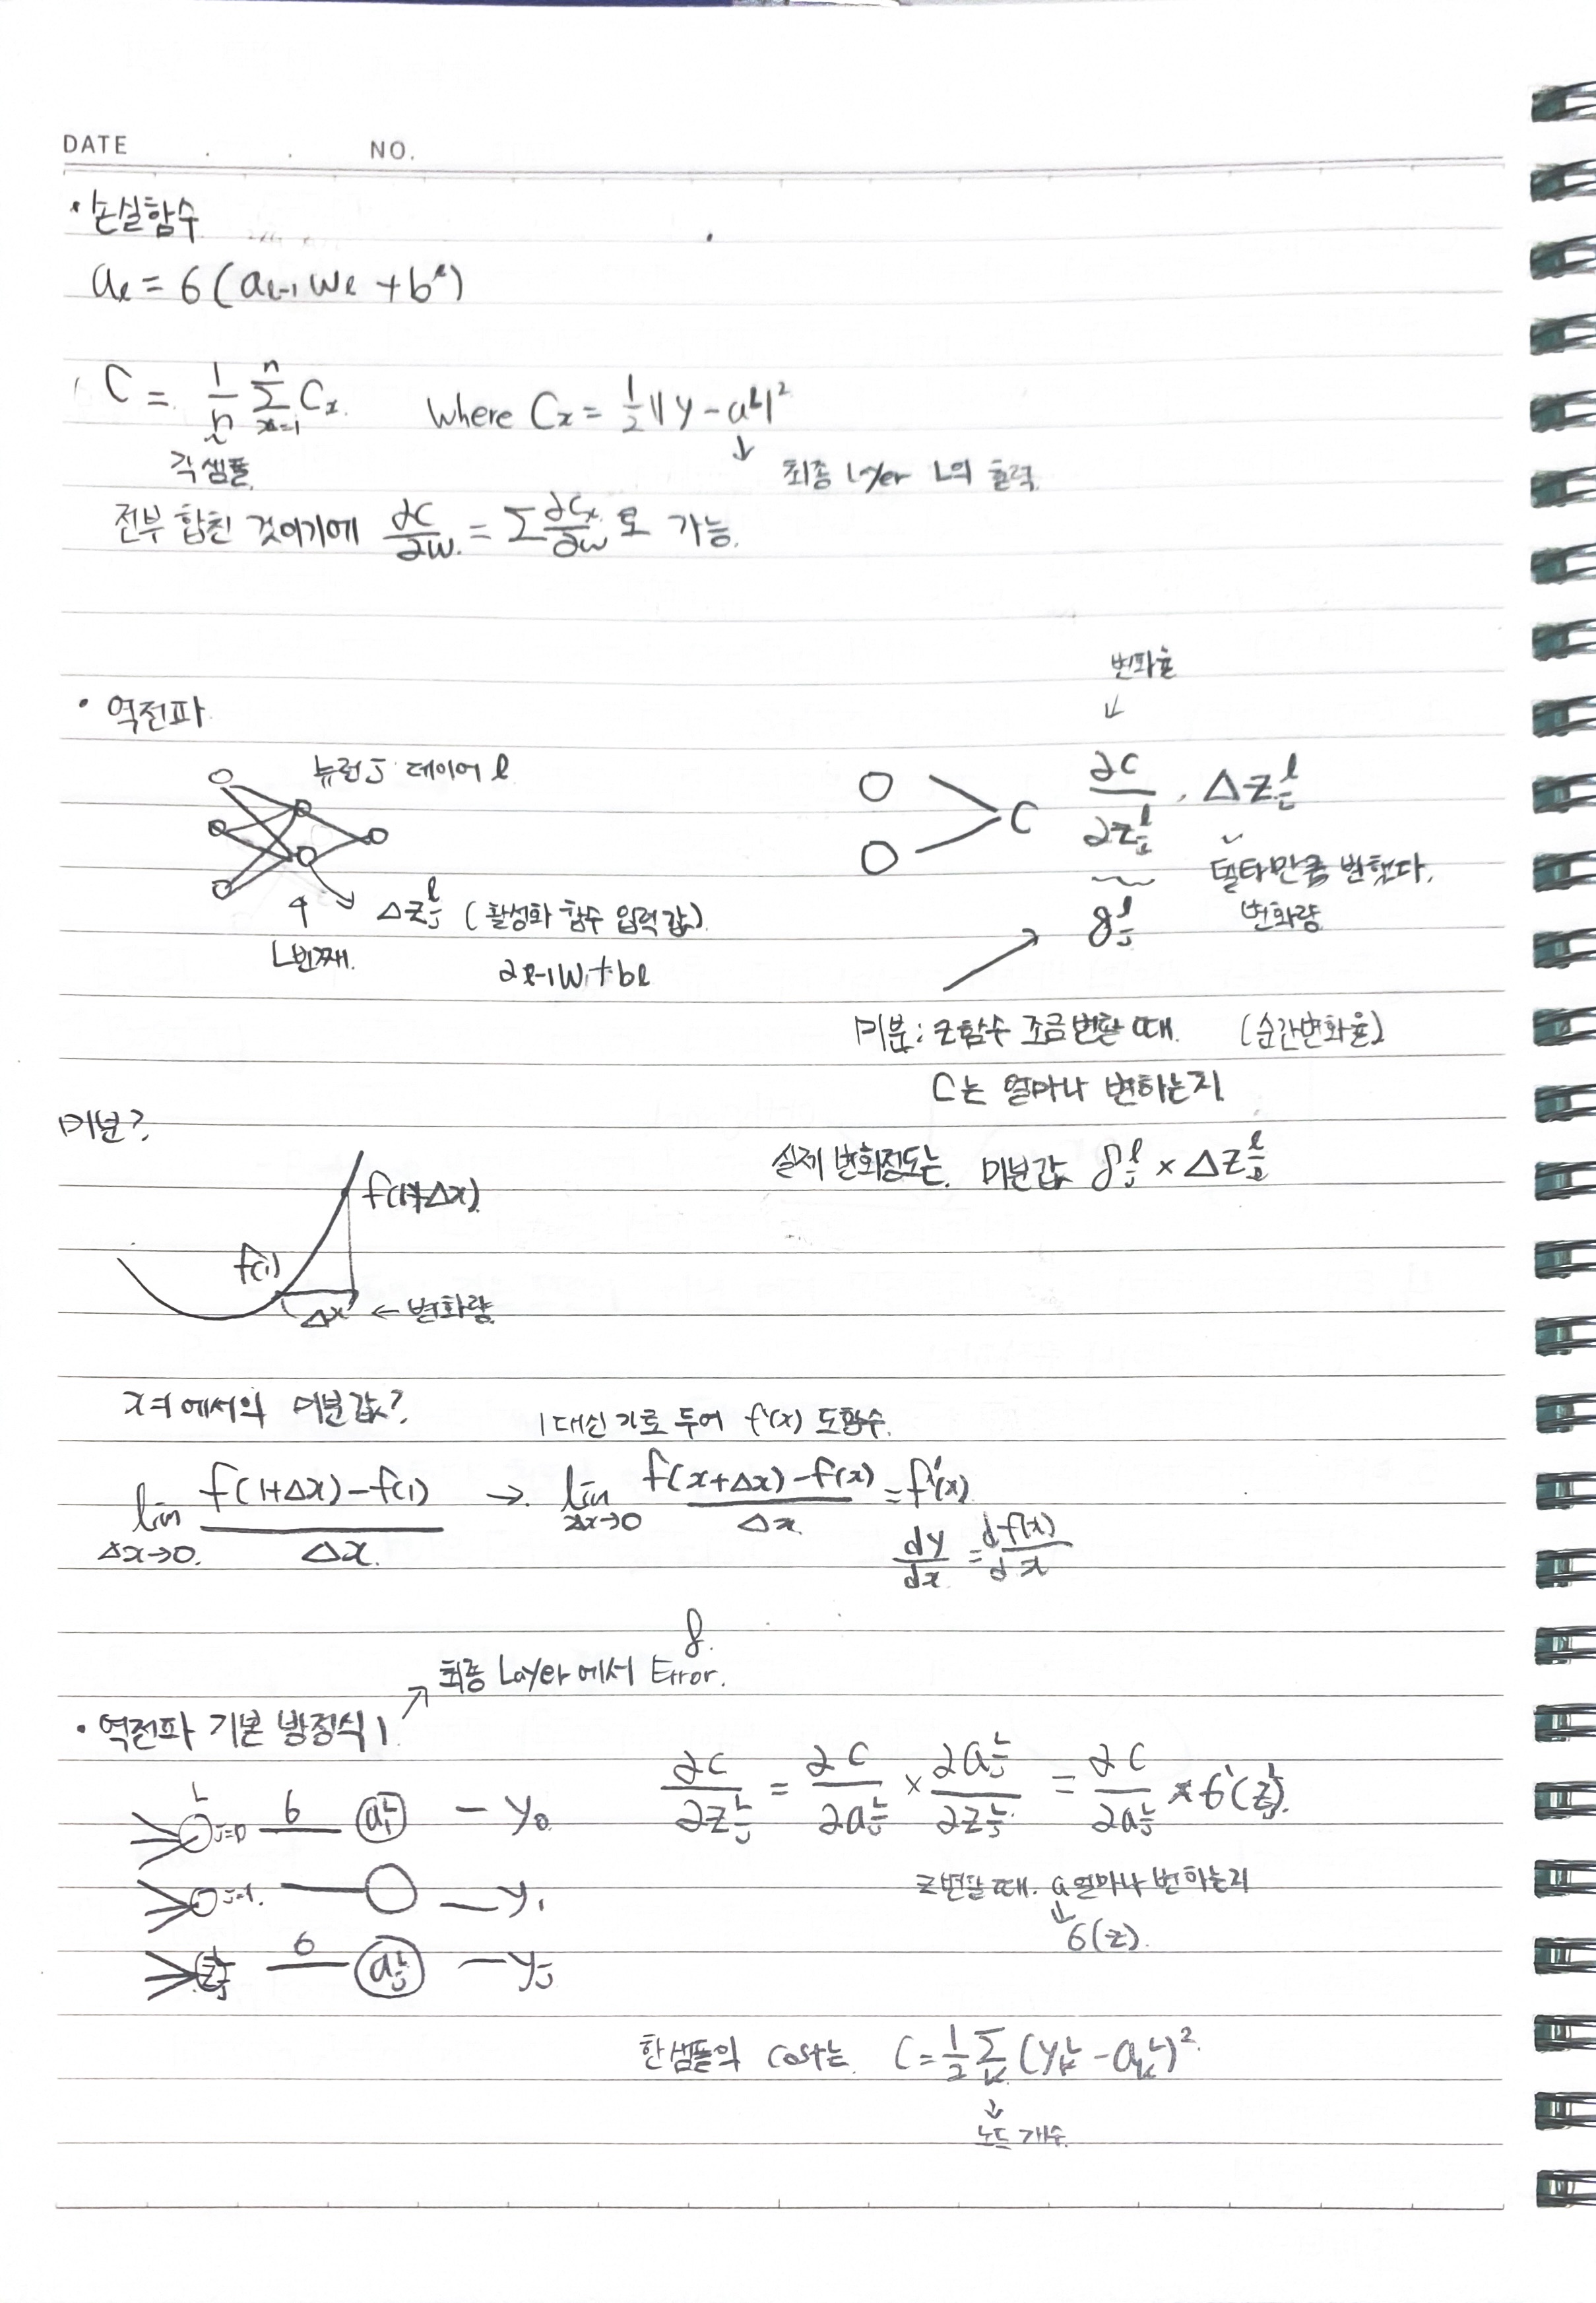 DATE . . NO.
• 손실함수
aℓ = σ(aℓ-1 wℓ + b^ℓ)
C = 1/n Σ_{x=1}^{n} Cx where Cx = 1/2 ||y - a^L||²
각 샘플. ↓ 최종 Layer L의 출력.
전부 합친 것이기에 ∂C/∂w = Σ ∂Cx/∂w 로 가능.
변화율
↓
• 역전파
뉴런 j 레이어 ℓ
L번째.
Δz_j^ℓ (활성화 함수 입력 값)
aℓ-1 w + bℓ
C ∂C/∂z_j^ℓ . Δz_j^ℓ
델타만큼 변했다.
δ_j^ℓ 변화량
미분 : z함수 조금 변할 때. (순간변화율)
C는 얼마나 변하는지
실제 변화정도는. 미분값 δ_j^ℓ × Δz_j^ℓ
미분?
f(1+Δx)
f(1)
Δx ← 변화량
x=1에서의 미분값?
1 대신 x로 두어 f'(x) 도함수.
lim_{Δx→0} (f(1+Δx)-f(1))/Δx → lim_{Δx→0} (f(x+Δx)-f(x))/Δx = f'(x)
dy/dx = df(x)/dx
δ.
↗ 최종 Layer에서 Error.
• 역전파 기본 방정식 1
L
j=0 σ a_1^L — y₀
j=1 — y₁
z_j^L σ a_j^L — y_j
∂C/∂z_j^L = ∂C/∂a_j^L × ∂a_j^L/∂z_j^L = ∂C/∂a_j^L × σ'(z_j^L).
z변할 때. a 얼마나 변하는지
↓
σ(z).
한 샘플의 cost는. C = 1/2 Σ_k (y_k^L - a_k^L)².
↓
노드 개수.